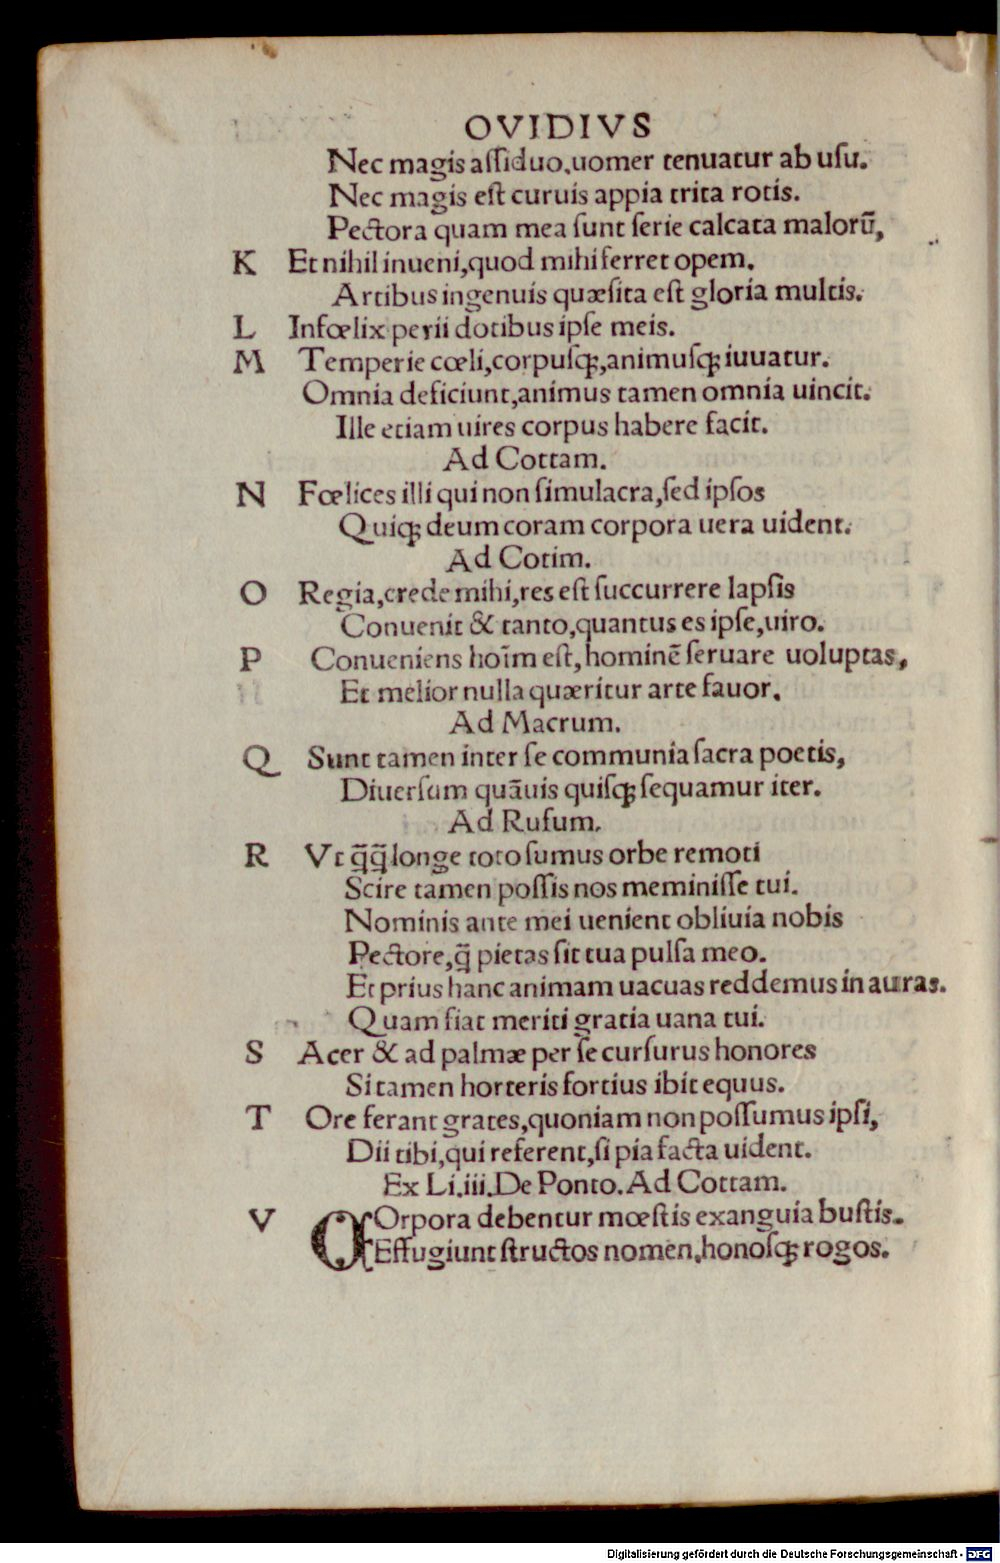 OVIDIVS
Nec magis aſſiduo,uomer tenuatur ab uſu.
Nec magis eſt curuis appia trita rotis.
Pectora quam mea ſunt ſerie calcata malorū,
K Et nihil inueni,quod mihi ferret opem.
Artibus ingenuis quæſita eſt gloria multis.
L Infœlix perii dotibus ipſe meis.
M Temperie cœli,corpuſqꝫ,animuſqꝫ iuuatur.
Omnia deficiunt,animus tamen omnia uincit.
Ille etiam uires corpus habere facit.
Ad Cottam.
N Fœlices illi qui non ſimulacra,ſed ipſos
Quiqꝫ deum coram corpora uera uident.
Ad Cotim.
O Regia,crede mihi,res eſt ſuccurrere lapſis
Conuenit & tanto,quantus es ipſe,uiro.
P Conueniens hoīm eſt,hominē ſeruare uoluptas,
Et melior nulla quæritur arte fauor.
Ad Macrum.
Q Sunt tamen inter ſe communia ſacra poetis,
Diuerſum quāuis quiſqꝫ ſequamur iter.
Ad Rufum.
R Vt q̄q̄ longe toto ſumus orbe remoti
Scire tamen poſſis nos meminiſſe tui.
Nominis ante mei uenient obliuia nobis
Pectore,q̄ pietas ſit tua pulſa meo.
Et prius hanc animam uacuas reddemus in auras.
Quam fiat meriti gratia uana tui.
S Acer & ad palmæ per ſe curſurus honores
Si tamen horteris fortius ibit equus.
T Ore ferant grates,quoniam non poſſumus ipſi,
Dii tibi,qui referent,ſi pia facta uident.
Ex Li.iii.De Ponto.Ad Cottam.
V COrpora debentur mœſtis exanguia buſtis.
Effugiunt ſtructos nomen,honoſqꝫ rogos.
Digitalisierung gefördert durch die Deutsche Forschungsgemeinschaft - DFG